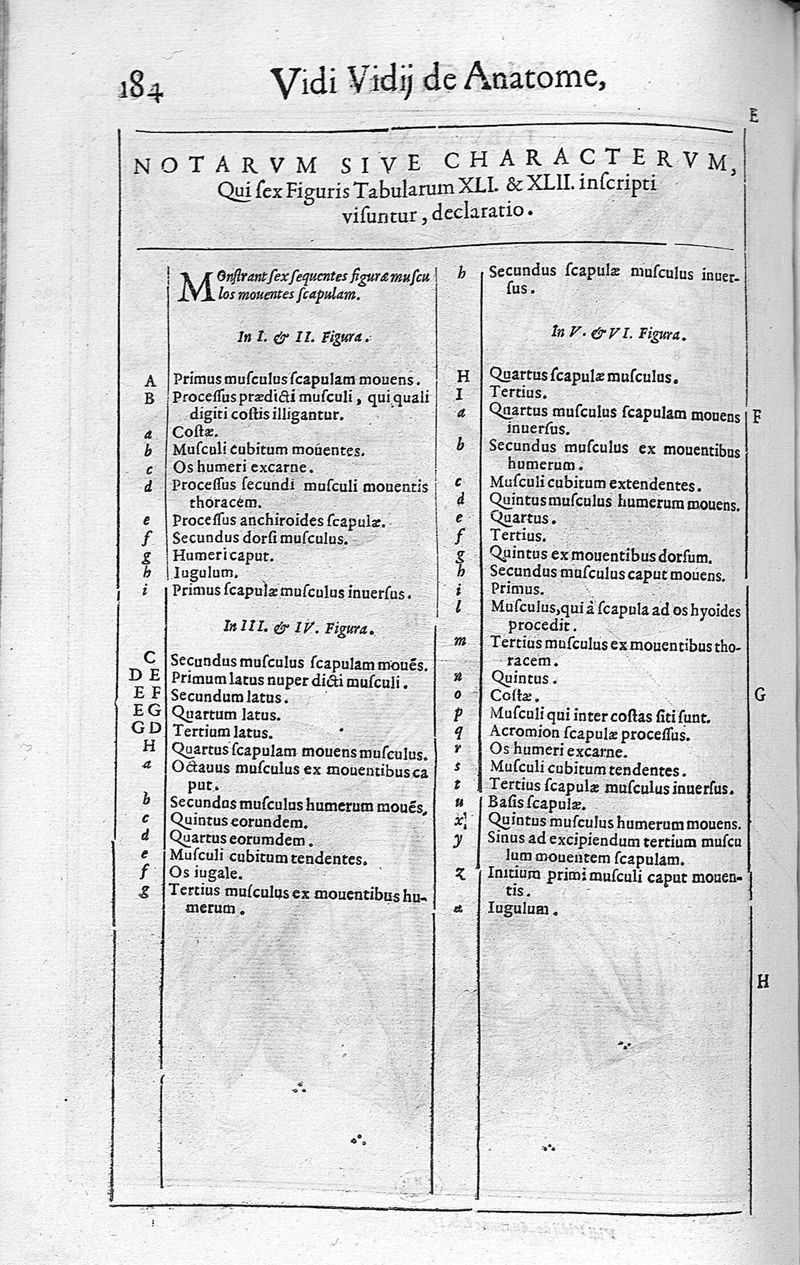 184 Vidi Vidij de Anatome,
E
NOTARVM SIVE CHARACTERVM,
Qui ſex Figuris Tabularum XLI. & XLII. inſcripti
viſuntur, declaratio.
MOnſtrant ſex ſequentes figuræ muſcu
los mouentes ſcapulam.
In I. & II. Figura.
A Primus muſculus ſcapulam mouens.
B Proceſſus prædicti muſculi, qui quali
digiti coſtis illigantur.
a Coſtæ.
b Muſculi cubitum mouentes.
c Os humeri excarne.
d Proceſſus ſecundi muſculi mouentis
thoracem.
e Proceſſus anchiroides ſcapulæ.
f Secundus dorſi muſculus.
g Humeri caput.
h Iugulum.
i Primus ſcapulæ muſculus inuerſus.
In III. & IV. Figura.
C Secundus muſculus ſcapulam moués.
D E Primum latus nuper dicti muſculi.
E F Secundum latus.
E G Quartum latus.
G D Tertium latus.
H Quartus ſcapulam mouens muſculus.
a Octauus muſculus ex mouentibus ca
put.
b Secundus muſculus humerum moués,
c Quintus eorundem.
d Quartus eorumdem.
e Muſculi cubitum tendentes.
f Os iugale.
g Tertius muſculus ex mouentibus hu-
merum.
h Secundus ſcapulæ muſculus inuer-
ſus.
In V. & VI. Figura.
H Quartus ſcapulæ muſculus.
I Tertius.
a Quartus muſculus ſcapulam mouens
inuerſus.
F
b Secundus muſculus ex mouentibus
humerum.
c Muſculi cubitum extendentes.
d Quintus muſculus humerum mouens.
e Quartus.
f Tertius.
g Quintus ex mouentibus dorſum.
h Secundus muſculus caput mouens.
i Primus.
l Muſculus, qui à ſcapula ad os hyoides
procedit.
m Tertius muſculus ex mouentibus tho-
racem.
n Quintus.
o Coſtæ.
G
p Muſculi qui inter coſtas ſiti ſunt.
q Acromion ſcapulæ proceſſus.
r Os humeri excarne.
s Muſculi cubitum tendentes.
t Tertius ſcapulæ muſculus inuerſus.
u Baſis ſcapulæ.
x Quintus muſculus humerum mouens.
y Sinus ad excipiendum tertium muſcu
lum mouentem ſcapulam.
z Initium primi muſculi caput mouen-
tis.
a Iugulum.
H